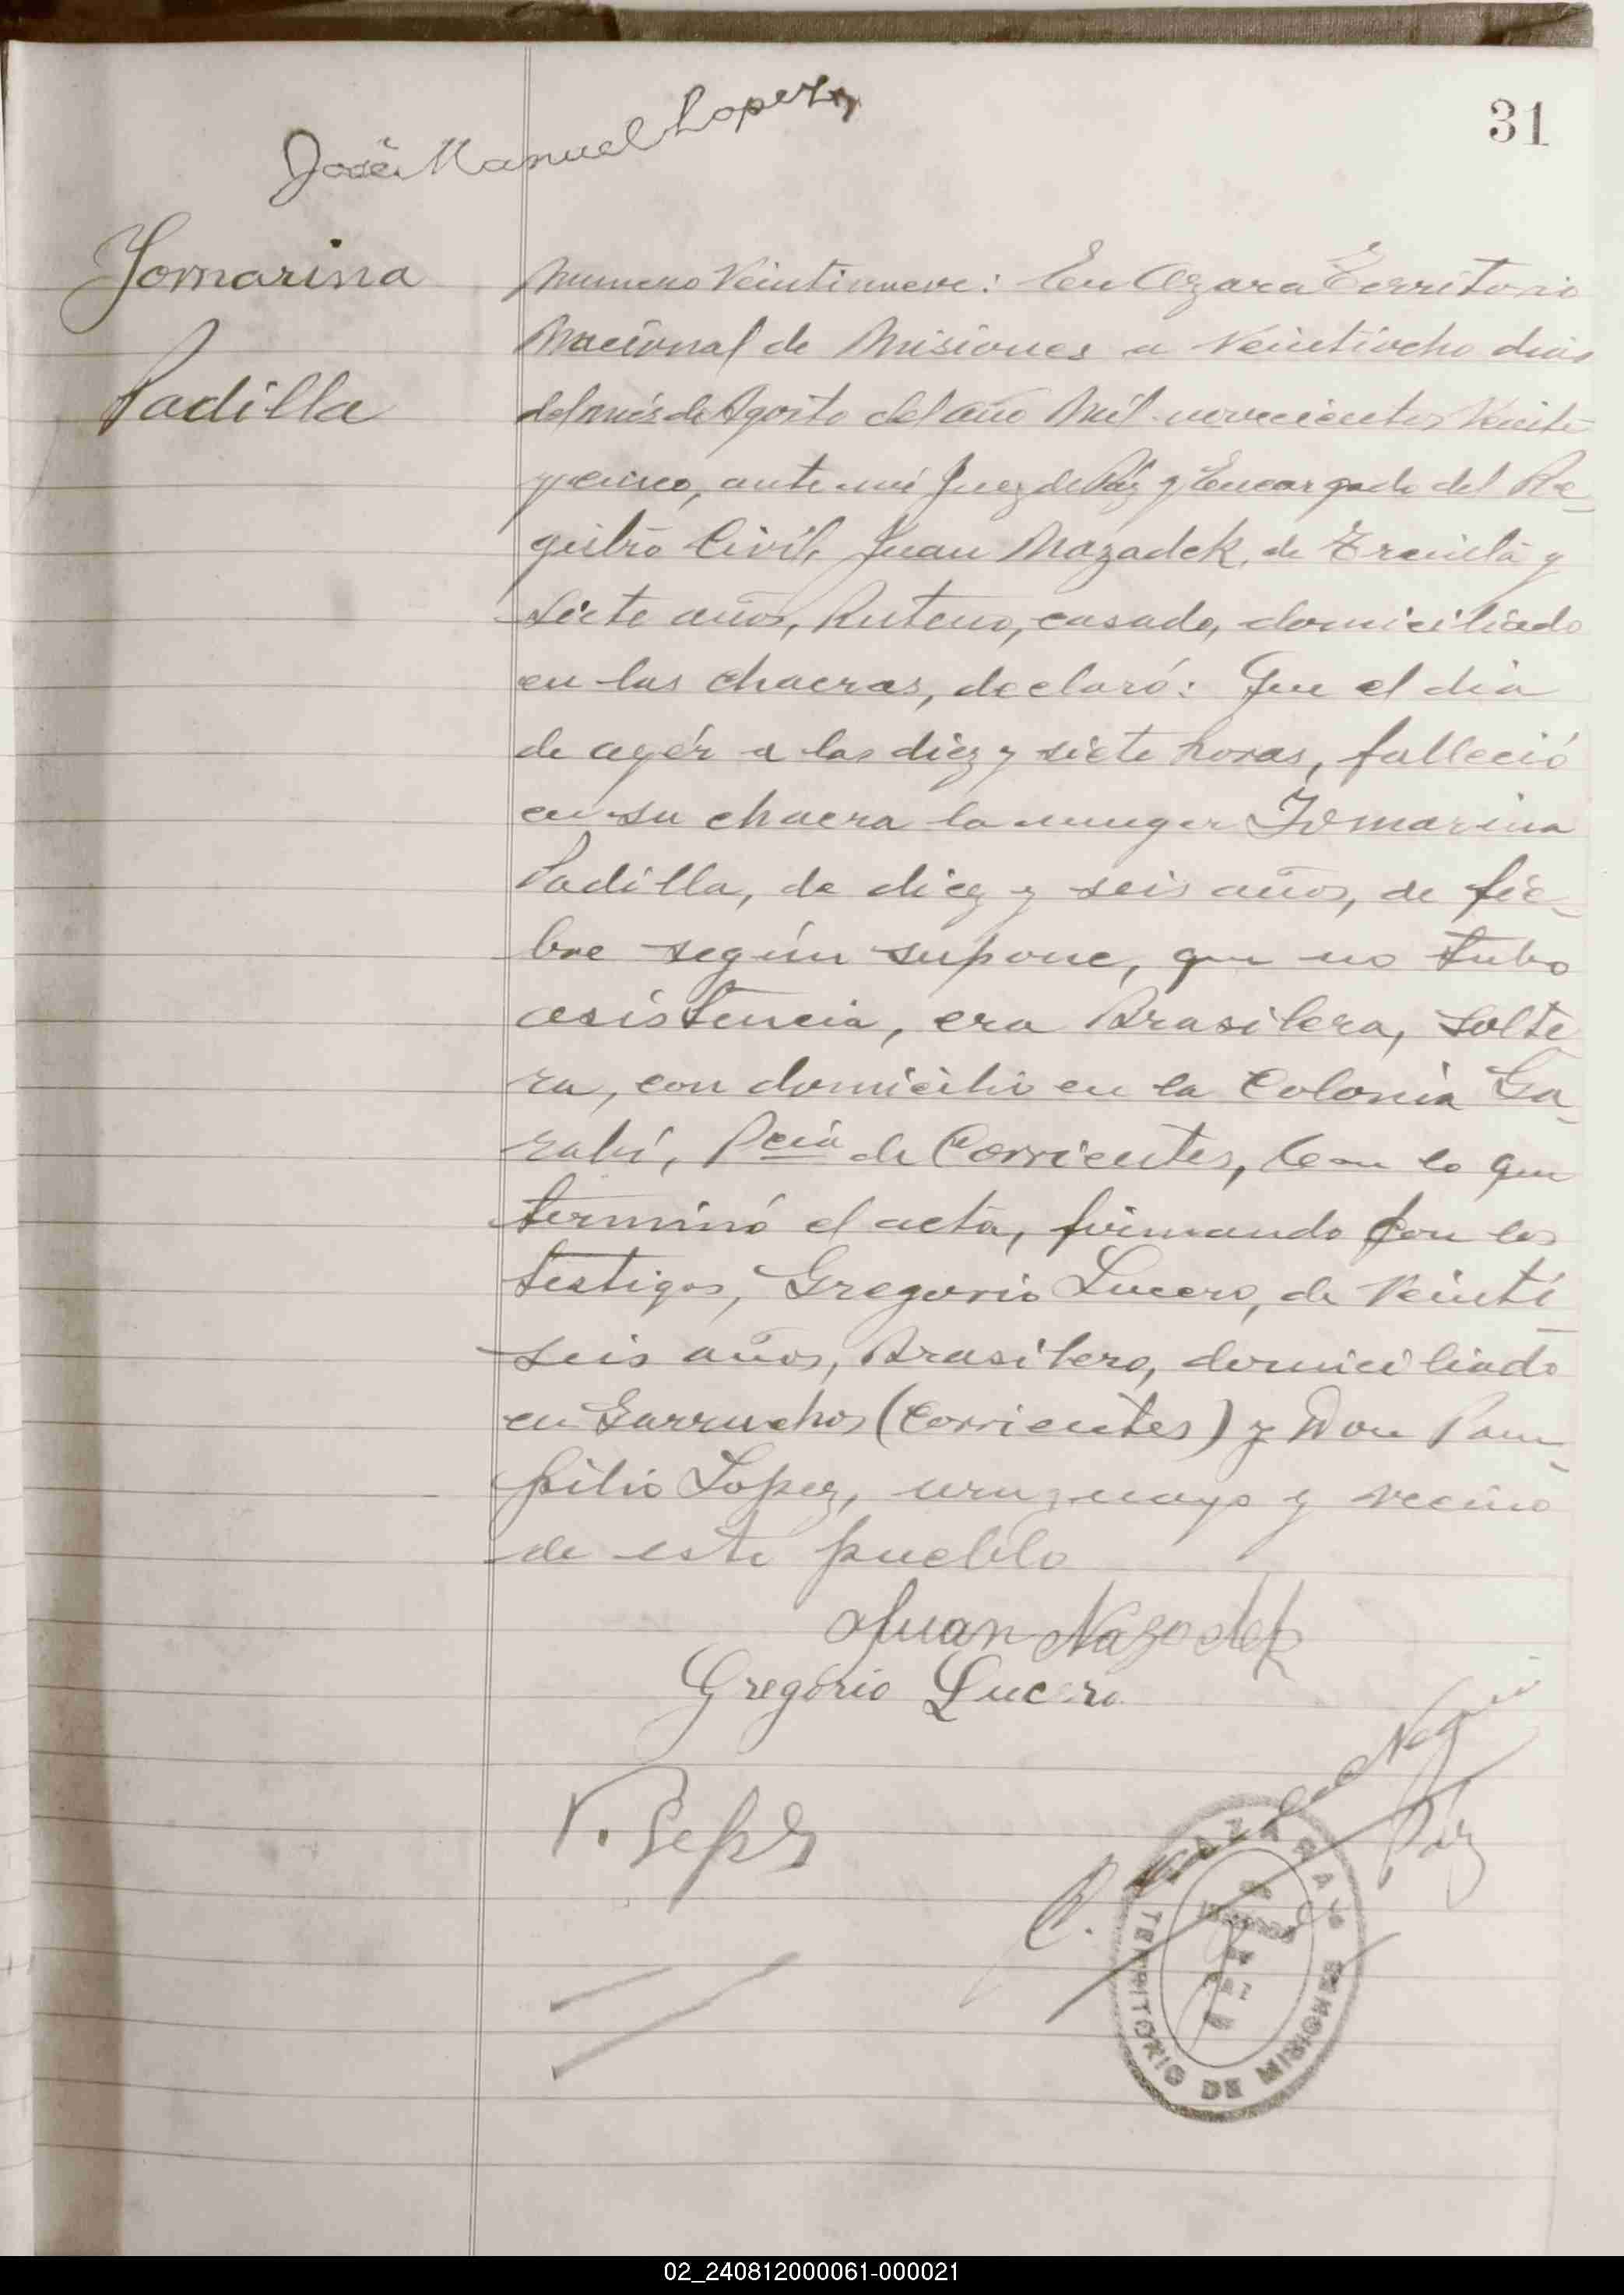 31
José Manuel Lopez
Jomarina
Padilla
Numero Veintinueve: En Azara Territorio
Nacional de Misiones a Veintiocho dias
del més de Agosto del año Mil novecientos Veinte
y cinco, ante mi Juez de Páz y Encargado del Re-
gistro Civil, Juan Nazadek, de Treinta y
siete años, Ruteno, casado, domiciliado
en las chacras, declaró: Que el dia
de ayér a las diez y siete horas, falleció
en su chacra la muger Jomarina
Padilla, de diez y seis años, de fie-
bre según supone, que no tubo
asistencia, era Brasilera, solte
ra, con domicilio en la Colonia Ga-
rabí, Pcia de Corrientes, Con lo que
terminó el acta, firmando con los
testigos, Gregorio Lucero, de Veinti
seis años, Brasilero, domiciliado
en Garruchos (Corrientes) y Don Pom-
pilio Lopez, uruguayo y vecino
de este pueblo
Juan Nazadek
Gregorio Lucero
P. Lopez
AZARA
TERRITORIO DE MISIONES
02_240812000061-000021